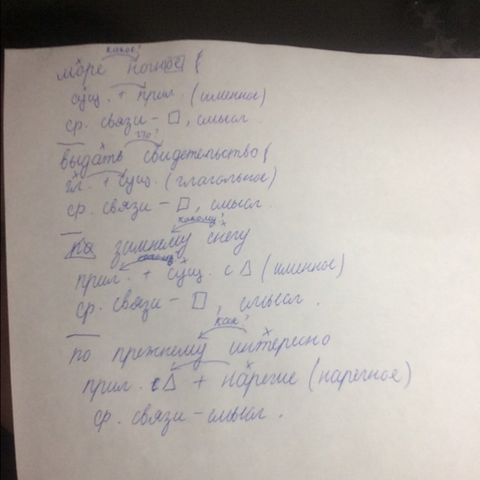 какое?
море ночное {
сущ. + прил. (именное)
ср. связи – □, смысл.
что?
выдать свидетельство {
гл. + сущ. (глагольное)
ср. связи – □, смысл.
какому?
по зимнему снегу
какому
прил. + сущ. с △ (именное)
ср. связи – □, смысл.
как?
по прежнему интересно
прил. с △ + наречие (наречное)
ср. связи – смысл.